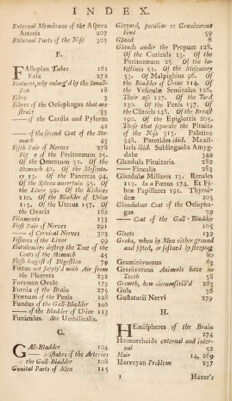 INDEX.
External Membrane of the Aspera
Arteria 207
External Parts of the Nose 305
F.
FAllopian Tubes 161
Falx 272
Features, why enlarg'd by the Small-
Pox 18
Fibre 1
Fibres of the Oesophagus that are
strait 33
— of the Cardia and Pylorus
42
— of the second Coat of the Sto-
mach 43
Fifth Pair of Nerves 278
Fig e of the Peritonæum 25.
Of the Omentum 31. Of the
Stomach 42. Of the Mesente-
ry 53. Of the Pancreas 91.
Of the Spleen uncertain 95. Of
the Liver 99. Of the Kidneys
110. Of the Bladder of Urine
113. Of the Uterus 157. Of
the Ovaria 162
Filaments 133
First Pair of Nerves 291
— of Cervical Nerves 303
Fissures of the Liver 99
Flatulencies destroy the Tone of the
Coats of the Stomach 45
Flesh hugest of Digestion 79
Foetus not supply'd with Air from
the Placenta 232
Foramen Ovale 173
Fornix of the Brain 275
Frænum of the Penis 128
Fundus of the Gall-Bladder 106
— of the Bladder of Urine 113
Funiculus. See Umbilicalis.
G.
GAll-Bladder 104
— mistakes of the Arteries
the Gall-Bladder 108
Genital Parts of Men 115
Gizzard, peculiar to Granivorous
Fowl 59
Gland 6
Glands under the Prepuce 128.
Of the Cuticula 13. Of the
Peritonæum 25. Of the In-
testines 51. Of the Mesentery
53. Of Malpighius 96. Of
the Bladder of Urine 114. Of
the Vesiculæ Seminales 126.
Their use 127. Of the Yard
130. Of the Penis 137. Of
the Clitoris 146. Of the Breast
190. Of the Epiglottis 205.
Those that separate the Pituita
of the Nose 313. Palatini
348. Parotides ibid. Maxil-
lares ibid. Sublinguales Amyg-
dalæ 349
Glandula Pituitaria 282
— Pinealis 283
Glandulæ Miliares 13. Renales
112. In a Foetus 174. Et Fi-
bræ Papillares 191. Thyroi-
deæ 205
Glandulous Coat of the Oesopha-
gus 39
— Coat of the Gall-Bladder
105
Gleets 139
Grain, when by Men either ground
and sifted, or softned by steeping
80
Graminivorous 62
Granivorous Animals have no
Teeth 58
Growth, how circumscrib'd 283
Gula 36
Gustatorii Nervi 279
H.
HEmispheres of the Brain
274
Hæmorrhoids external and inter-
nal 52
Hair 14, 269
Harveyan Problem 237
1
Havers's